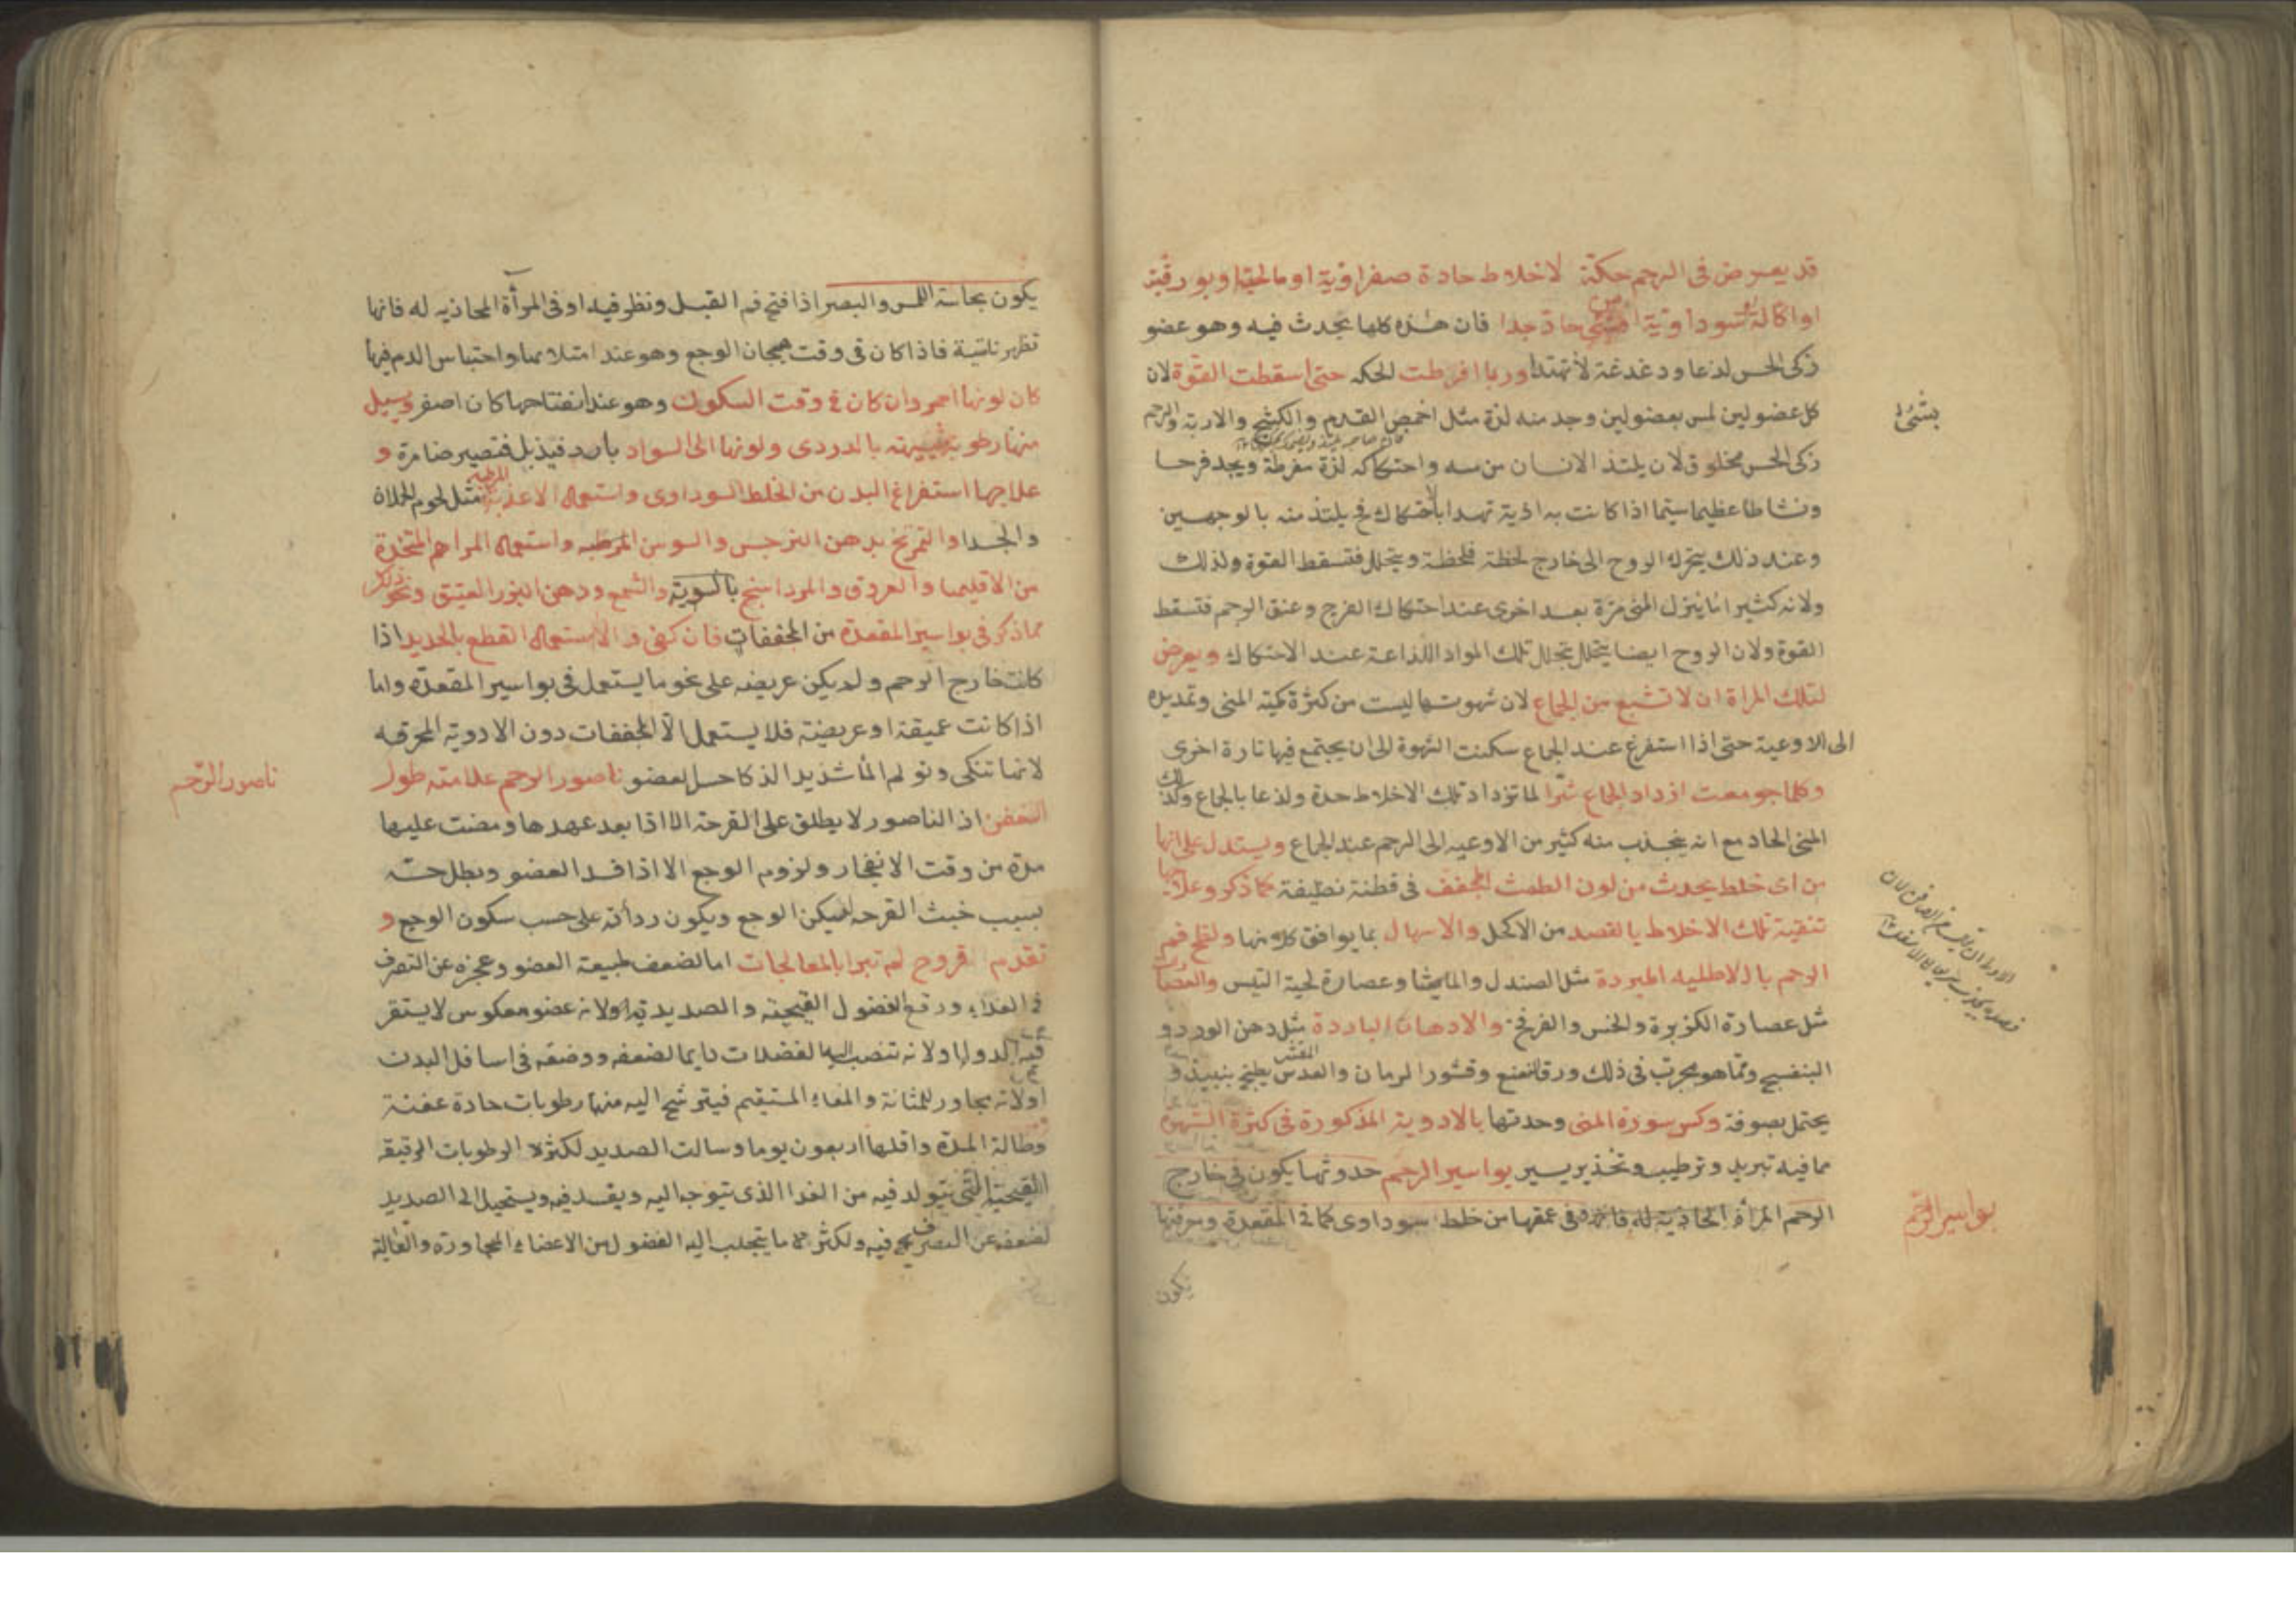 قد يعرض في الرحم حكة لاخلاط حادة صفراوية او مالحة او بورقية
او اكالة سوداوية حاد جدا فان هذه كلها يحدث فيه وهو عضو
زكى الحس لذعا ودغدغة لا تهتدا وربما افرطت الحكه حتى اسقطت القوة لان
كل عضو لين لمس بعضو لين وجد منه لذة مثل اخمص القدم والكشح والاربة والرحم
زكى الحس مخلوق لان يلتذ الانسان من مسه واحتكاكه لذة مفرطة ويجد فرحا
ونشاطا عظيما سيما اذا كانت به اذية تهدا بالاحتكاك فح يلتذ منه بالوجهين
وعند ذلك يتحرك الروح الى خارج لحظة فلحظة ويتحلل فتسقط القوة ولذلك
ولانه كثيرا ما ينزل المنى مرة بعد اخرى عند احتكاك الفرج وعنق الرحم فتسقط
القوة ولان الروح ايضا يتحلل بتحلل تلك المواد اللذاعة عند الاحتكاك ويعرض
لتلك المراة ان لا تشبع من الجماع لان شهوتها ليست من كثرة كمية المنى وتمديده
الى الاوعية حتى اذا استفرغ عند الجماع سكنت الشهوة الى ان يجتمع فيها تارة اخرى
وكلما جومعت ازداد الجماع شرا لما تزداد تلك الاخلاط حدة ولذعا بالجماع وكذلك
المنى الحاد مع انه ينجذب منه كثير من الاوعيه الى الرحم عند الجماع ويستدل على انها
من اى خلط يحدث من لون الطمث المجفف في قطنة نظيفة كما ذكر وعلاجها
تنقية تلك الاخلاط بالفصد من الاكحل والاسهال بما يوافق كلا منها ولطخ فم
الرحم بالاطليه المبردة مثل الصندل والماميثا وعصارة لحية التيس والعصارات
مثل عصارة الكزبرة والخس والفرفخ والادهان الباردة مثل دهن الورد و
البنفسج ومما هو مجرب في ذلك ورق النعنع وقشور الرمان والعدس المقشر يطبخ بنبيذ و
يحتمل بصوفة وكسر سورة المنى وحدتها بالادوية المذكورة في كثرة الشهوة
مما فيه تبريد وترطيب وتخذير يسير بواسير الرحم حدوثها يكون في خارج
الرحم المرأة المحاذية له فانها وفي عمقها من خلط سوداوى كما في المقعدة ومعرفتها
يكون
بواسير الرحم
يكون بحاسة اللمس والبصر اذا فتح فم القبل ونظر فيه او في المرأة المحاذيه له فانها
تظهر ناتية فاذا كان في وقت هيجان الوجع وهو عند امتلائها واحتباس الدم فيها
كان لونها احمر وان كان في وقت السكون وهو عند انفتاحها كان اصفر ويسيل
منها رطوبة شبيهة بالدردى ولونها الى السواد بارد فيذبل فتصير ضامرة و
علاجها استفراغ البدن من الخلط السوداوى واستعمال الاغذية المرطبه مثل لحوم الحملان
والجدا والتمريخ بدهن النرجس والسوسن المرطبه واستعمال المراهم المتخذة
من الاقليميا والعروق والمرداسنج بالسوية والشمع ودهن البزور العتيق ونحو ذلك
مما ذكر في بواسير المقعدة من المجففات فان كفى والا استعمال القطع بالحديد اذا
كانت خارج الرحم ولم يكن عريضه على نحو ما يستعمل في بواسير المقعدة واما
اذا كانت عميقة او عريضة فلا يستعمل الا المجففات دون الادوية المحرقه
لانها تنكى وتولم الما شديدا لذكا حس العضو ناصور الرحم علامته طول
التعفن اذ الناصور لا يطلق على القرحة الا اذا بعد عهدها ومضت عليها
مدة من وقت الانفجار ولزوم الوجع الا اذا فسد العضو وبطل حسه
بسبب خبث القرحه فيسكن الوجع ويكون رداته على حسب سكون الوجع و
تقدم قروح لم تبرا بالمعالجات اما لضعف طبيعة العضو وعجزه عن التصرف
في الغداء ودفع الفضول القيحية والصديدية او لانه عضو معكوس لا يستقر
فيه الدوا او لانه تنصب اليه الفضلات دايما لضعفه ووضعه في اسافل البدن
او لانه مجاور للمثانة والمعاء المستقيم فيترشح اليه منها رطوبات حادة عفنة
وطالة المدة واقلها اربعون يوما وسالت الصديد لكثرة الرطوبات الرقيقة
القيحية التى يتولد فيه من الغدا الذى يتوجه اليه ويفسد فيه ويستحيل الى الصديد
لضعفه عن التصرف فيه ولكثرة ما يتجلب اليه الفضول من الاعضاء المجاورة والعالية
ناصور الرحم